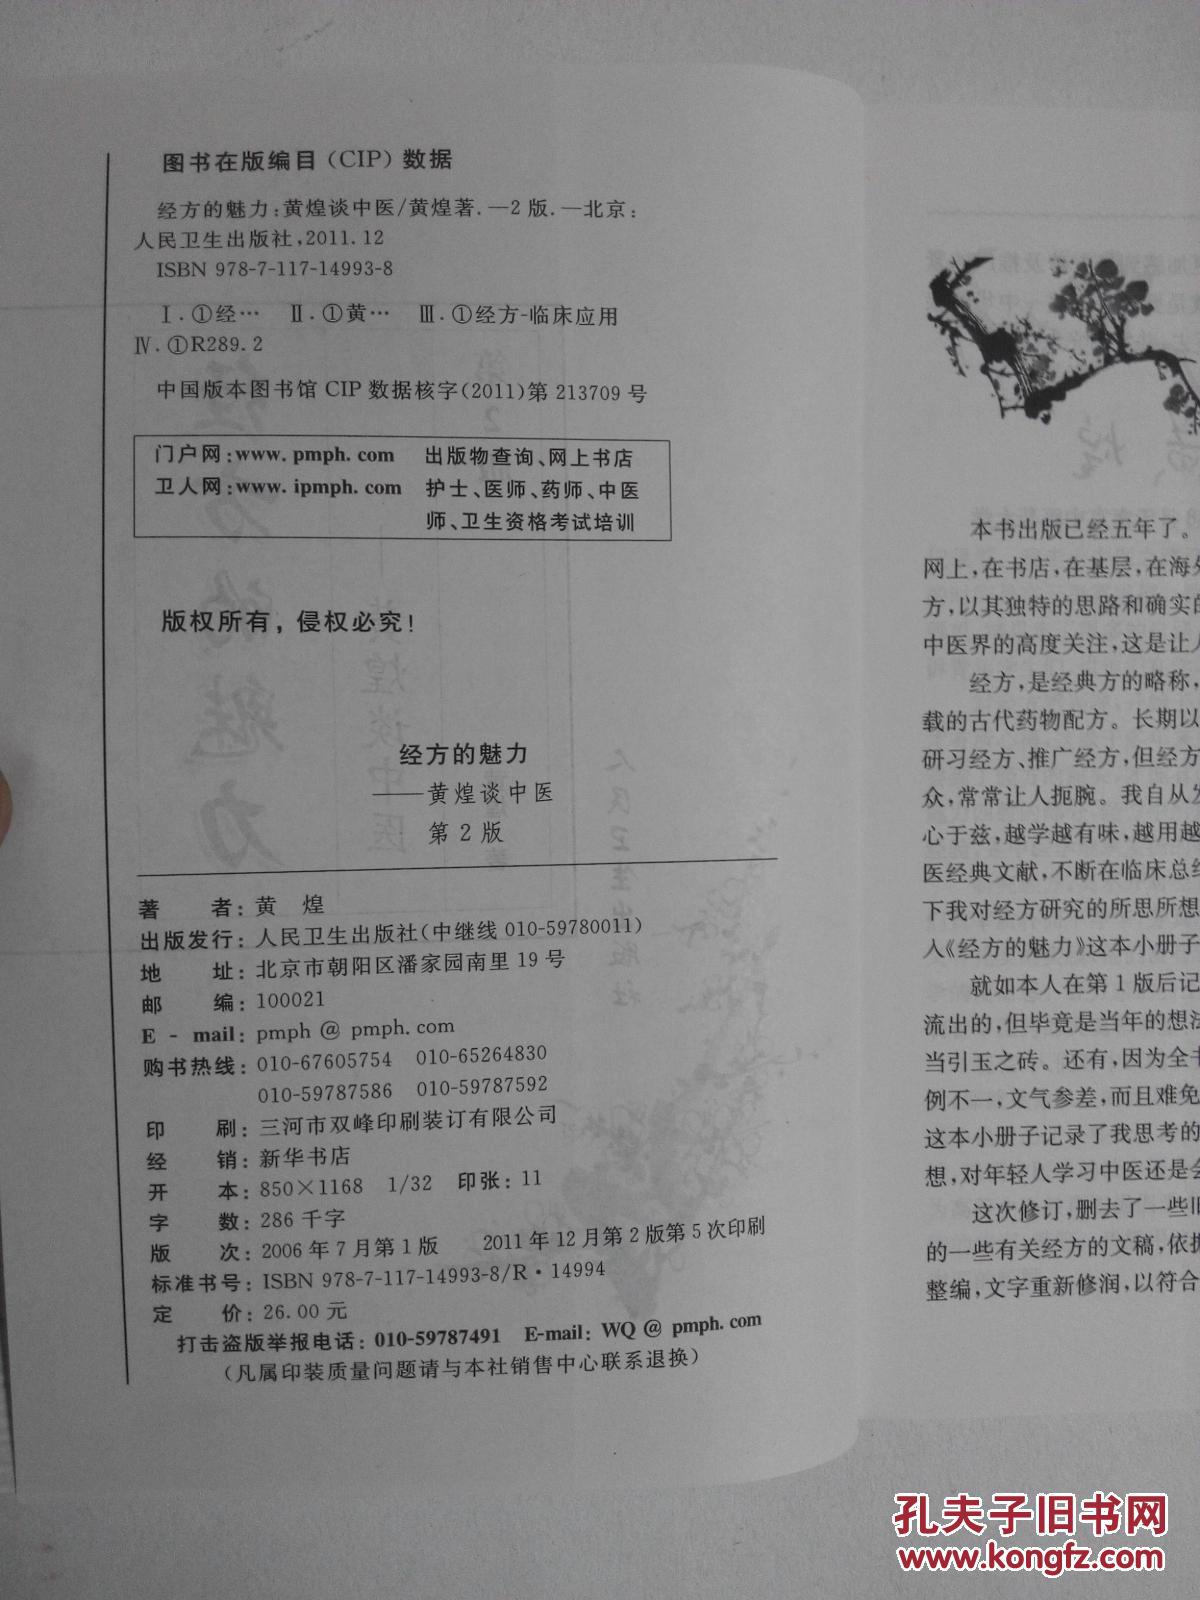 图书在版编目（CIP）数据
经方的魅力：黄煌谈中医/黄煌著．—2版．—北京：
人民卫生出版社，2011.12
ISBN 978-7-117-14993-8
Ⅰ.①经… Ⅱ.①黄… Ⅲ.①经方-临床应用
Ⅳ.①R289.2
中国版本图书馆CIP数据核字（2011）第213709号
门户网：www. pmph. com 出版物查询、网上书店
卫人网：www. ipmph. com 护士、医师、药师、中医
师、卫生资格考试培训
版权所有，侵权必究！
经方的魅力
——黄煌谈中医
第2版
著 者：黄 煌
出版发行：人民卫生出版社（中继线 010-59780011）
地 址：北京市朝阳区潘家园南里19号
邮 编：100021
E - mail：pmph @ pmph. com
购书热线：010-67605754 010-65264830
010-59787586 010-59787592
印 刷：三河市双峰印刷装订有限公司
经 销：新华书店
开 本：850×1168 1/32 印张：11
字 数：286千字
版 次：2006年7月第1版 2011年12月第2版第5次印刷
标准书号：ISBN 978-7-117-14993-8/R·14994
定 价：26.00元
打击盗版举报电话：010-59787491 E-mail：WQ @ pmph. com
（凡属印装质量问题请与本社销售中心联系退换）
本书出版已经五年了。
网上，在书店，在基层，在海外
方，以其独特的思路和确实的
中医界的高度关注，这是让人
经方，是经典方的略称，
载的古代药物配方。长期以
研习经方、推广经方，但经方
众，常常让人扼腕。我自从发
心于兹，越学越有味，越用越
医经典文献，不断在临床总结
下我对经方研究的所思所想
人《经方的魅力》这本小册子
就如本人在第1版后记
流出的，但毕竟是当年的想法
当引玉之砖。还有，因为全书
例不一，文气参差，而且难免
这本小册子记录了我思考的
想，对年轻人学习中医还是会
这次修订，删去了一些旧
的一些有关经方的文稿，依据
整编，文字重新修润，以符合
孔夫子旧书网
www.kongfz.com